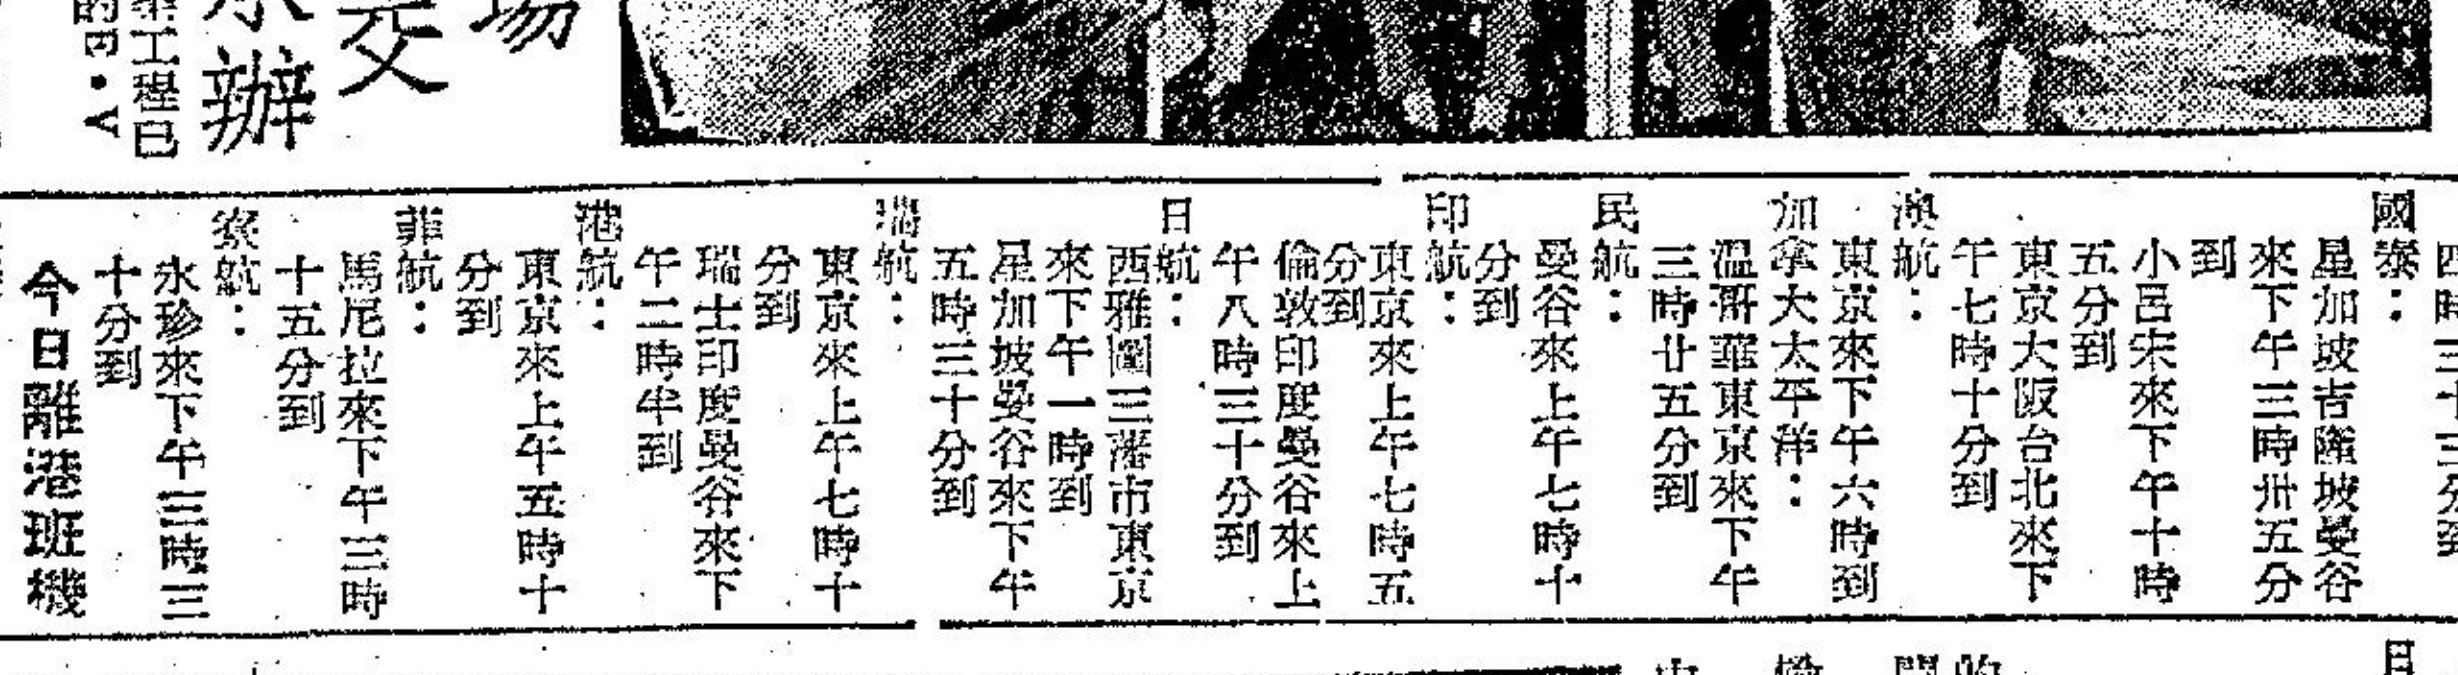 場
交
辦
工程已
的E·V
四時三十三分到
國泰：
星加坡吉隆坡曼谷
來下午三時卅五分
到
小呂宋來下午十時
五分到
東京大阪台北來下
午七時十分到
澳航：
東京來下午六時到
加拿大太平洋：
溫哥華東京來下午
三時廿五分到
民航：
曼谷來上午七時十
分到
印航：
東京來上午七時五
分到
倫敦印度曼谷來上
午八時三十分到
日航：
西雅圖三藩市東京
來下午一時到
星加坡曼谷來下午
五時三十分到
瑞航：
東京來上午七時十
分到
瑞士印度曼谷來下
午二時半到
港航：
東京來上午五時十
分到
菲航：
馬尼拉來下午三時
十五分到
寮航：
永珍來下午三時三
十分到
今日離港班機
日
的